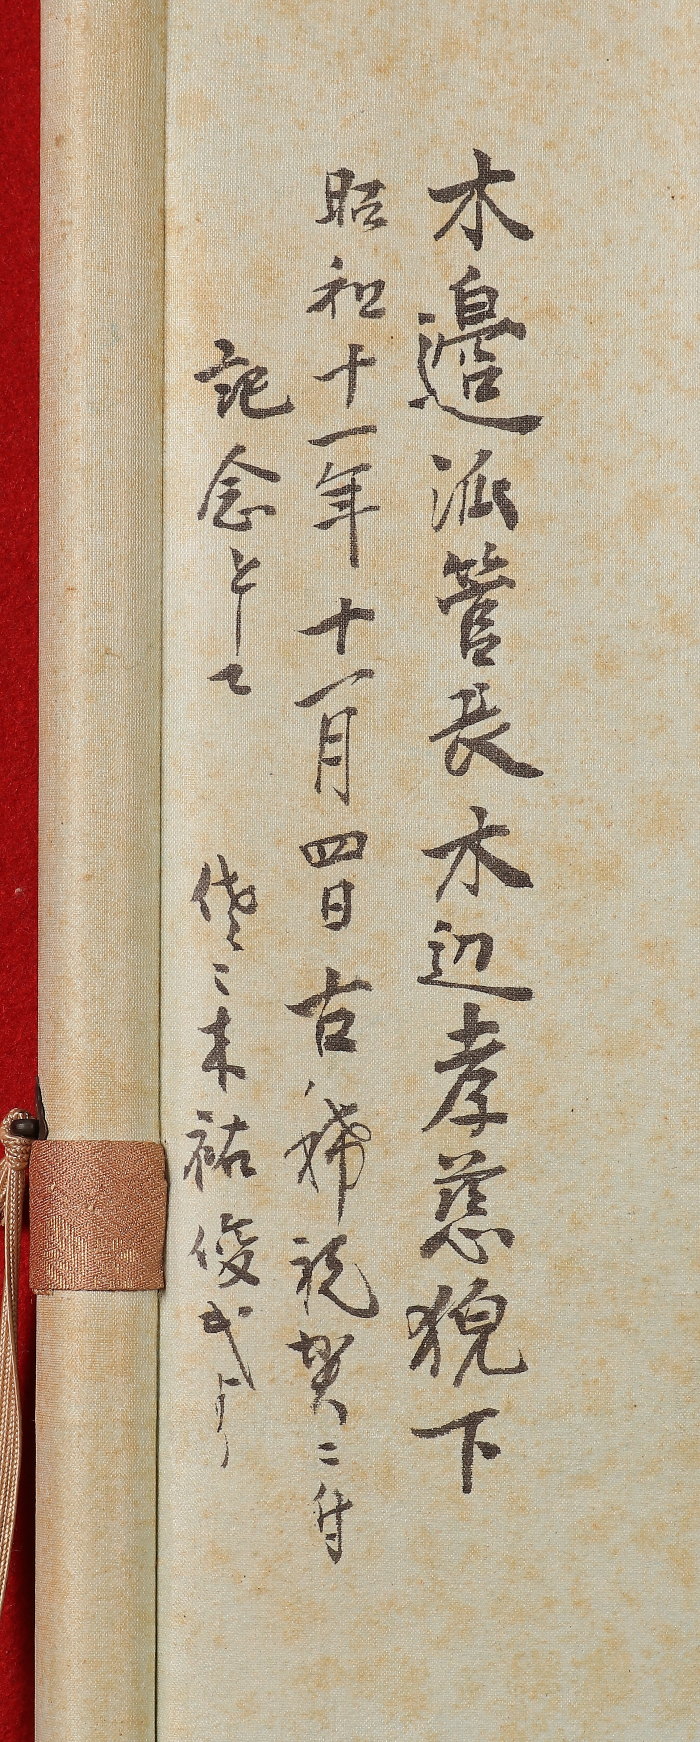 木邉派管長木辺孝慈猊下
昭和十一年十一月四日古稀祝賀ニ付
記念として 佐々木祐俊式より